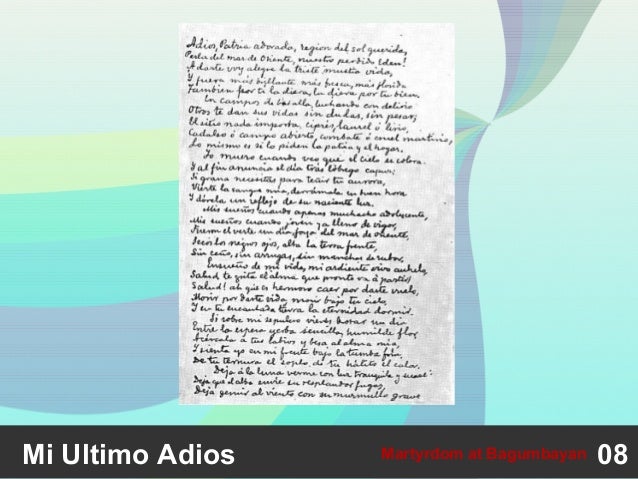 Adios, Patria adorada, region del sol querida,
Perla del mar de Oriente, nuestro perdido Eden!
A darte voy alegre la triste mustia vida,
Y fuera más brillante más fresca, más florida
Tambien por tí la diera, la diera por tu bien.
En campos de batalla, luchando con delirio
Otros te dan sus vidas sin dudas, sin pesar;
El sitio nada importa, ciprés, laurel ó lirio,
Cadalso ó campo abierto, combate ó cruel martirio,
Lo mismo es si lo piden la patria y el hogar.
Yo muero cuando veo que el cielo se colora
Y al fin anuncia el día tras lóbrego capuz;
Si grana necesitas para teñir tu aurora,
Vierte la sangre mía, derrámala en buen hora
Y dórela un reflejo de su naciente luz.
Mis sueños cuando apenas muchacho adolescente,
Mis sueños cuando joven ya lleno de vigor,
Fueron el verte un día joya del mar de oriente,
Secos los negros ojos, alta la tersa frente,
Sin ceño, sin arrugas, sin manchas de rubor.
Ensueño de mi vida, mi ardiente vivo anhelo,
Salud te grita el alma que pronto va á partir!
Salud! ah que es hermoso caer por darte vuelo,
Morir por darte vida, morir bajo tu cielo,
Y en tu encantada tierra la eternidad dormir.
Si sobre mi sepulcro vieres brotar un día
Entre la espesa yerba sencilla, humilde flor,
Acércala á tus labios y besa al alma mía,
Y sienta yo en mi frente bajo la tumba fría,
De tu ternura el soplo, de tu hálito el calor.
Deja á la luna verme con luz tranquila y suave:
Deja que el alba envíe su resplandor fugaz,
Deja gemir al viento con su murmullo grave
Mi Ultimo Adios
Martyrdom at Bagumbayan
08